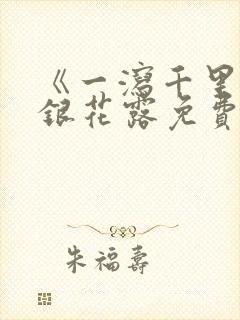 《一瀉千里
銀花露免費
朱福壽